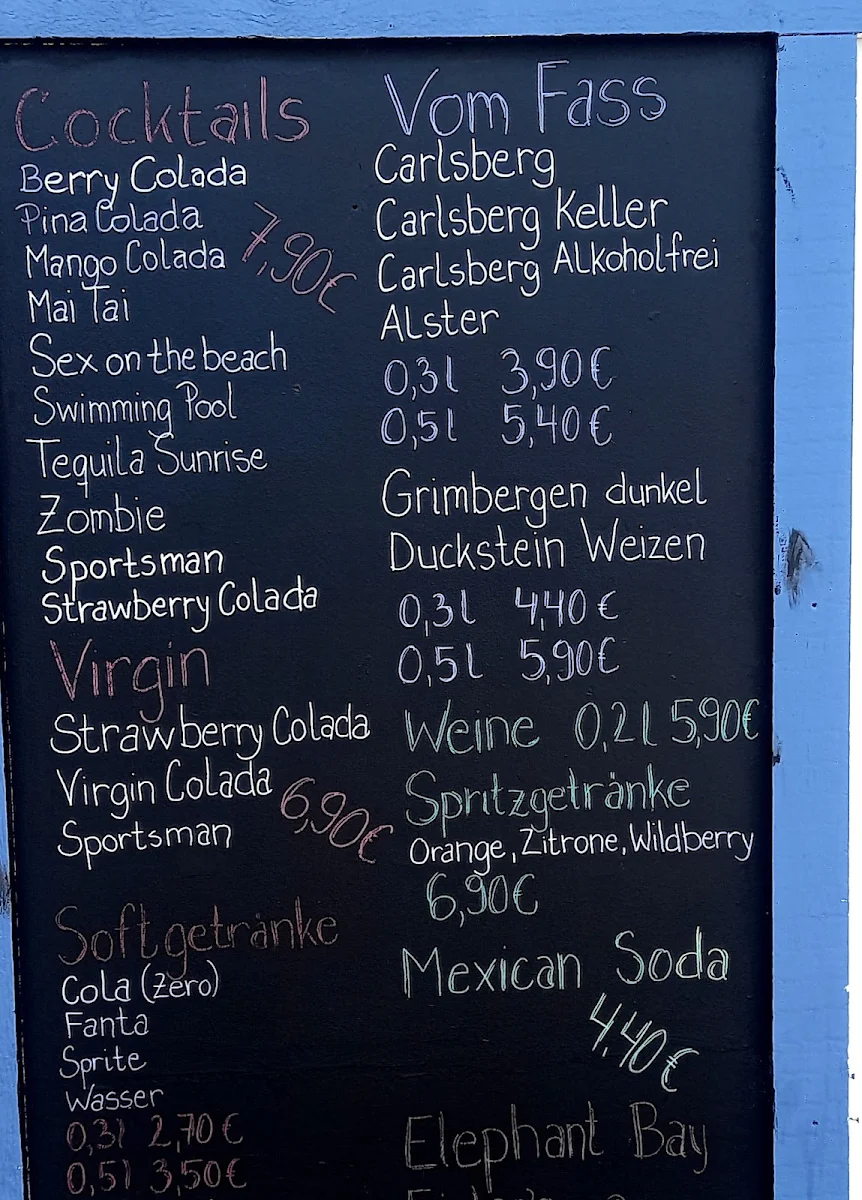 Cocktails
Berry Colada
Pina Colada
Mango Colada
7,90€
Mai Tai
Sex on the beach
Swimming Pool
Tequila Sunrise
Zombie
Sportsman
Strawberry Colada
Virgin
Strawberry Colada
Virgin Colada
6,90€
Sportsman
Softgetränke
Cola (Zero)
Fanta
Sprite
Wasser
0,3l 2,70€
0,5l 3,50€
Vom Fass
Carlsberg
Carlsberg Keller
Carlsberg Alkoholfrei
Alster
0,3l 3,90€
0,5l 5,40€
Grimbergen dunkel
Duckstein Weizen
0,3l 4,40€
0,5l 5,90€
Weine 0,2l 5,90€
Spritzgetränke
Orange, Zitrone, Wildberry
6,90€
Mexican Soda
4.40€
Elephant Bay